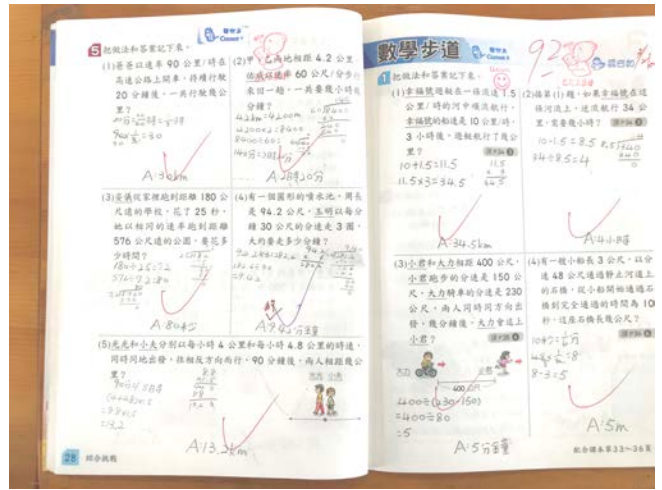 5 把做法和答案記下來。
(1)爸爸以速率 90 公里/時在
高速公路上開車,持續行駛
20 分鐘後,一共行駛幾公
里?
A:30km
(2)甲、乙兩地相距 4.2 公里,
60 公尺/分步行
來回一趟,一共要幾小時幾
分鐘?
4.2km=4200m
4200×2=8400
8400÷60=
A:2時20分
從家裡跑到距離 180 公
尺遠的學校,花了 25 秒,
她以相同的速率跑到距離
576 公尺遠的公園,要花多
少時間?
180÷25=7.2
576÷7.2=80
A:80秒
(4)有一個圓形的噴水池,周長
是 94.2 公尺,玉明以每分
鐘 30 公尺的分速走 3 圈,
大約要走多少分鐘?
A:9.42分鐘
(5)光光和小夫分別以每小時 4 公里和每小時 4.8 公里的時速,
同時同地出發,往相反方向而行,90 分鐘後,兩人相距幾公
里?
光光 小夫
=13.2
A:13.2km
28 綜合挑戰
數學步道
92
1 把做法和答案記下來。
(1)幸福號遊艇在一條流速 1.5
公里/時的河中順流航行,
幸福號的船速是 10 公里/時,
3 小時後,遊艇航行了幾公
里?
10+1.5=11.5
11.5×3=34.5
11.5
× 3
34.5
A:34.5km
(2)接第(1)題,如果幸福號在這
條河流上,逆流航行 34 公
里,需要幾小時?
10-1.5=8.5
34÷8.5=4
A:4小時
(3)小君和大力相距 400 公尺,
小君跑步的分速是 150 公
尺,大力騎車的分速是 230
公尺,兩人同時同方向出
發,幾分鐘後,大力會追上
小君?
大力
小君
400 公尺
400÷(230-150)
=400÷80
=5
A:5分鐘
(4)有一艘小船長 3 公尺,以分
速 48 公尺通過靜止河道上
的石橋,從小船開始通過石
橋到完全通過的時間為 10
秒,這座石橋長幾公尺?
8-3=5
A:5m
配合課本第33~36頁